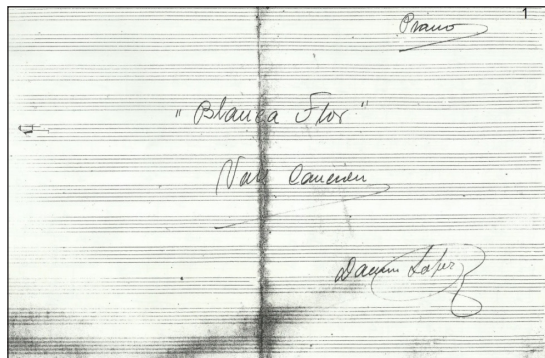 1
Piano
"Blanca Flor"
Vals Canción
Damian Lopez